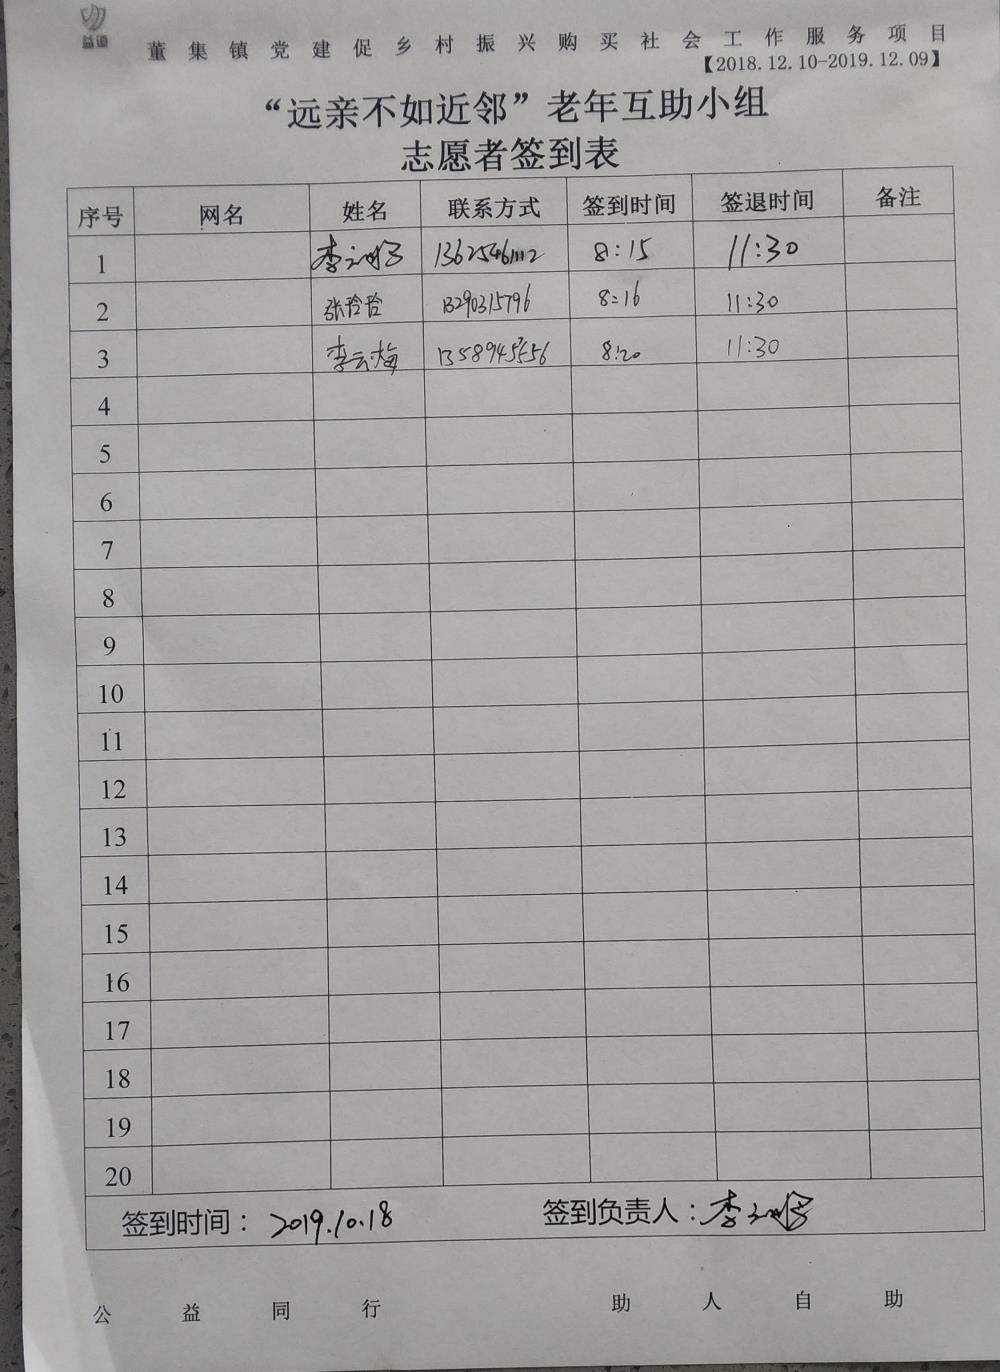 益道
董集镇党建促乡村振兴购买社会工作服务项目
【2018.12.10-2019.12.09】
“远亲不如近邻”老年互助小组
志愿者签到表
序号 网名 姓名 联系方式 签到时间 签退时间 备注
1 李 8:15 11:30
2 张玲玲 13290315796 8:16 11:30
3 李云梅 8:20 11:30
4
5
6
7
8
9
10
11
12
13
14
15
16
17
18
19
20
签到时间：2019.10.18 签到负责人：李
公益同行 助人自助